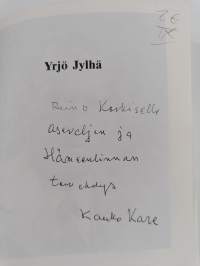 Yrjö Jylhä
Reino Koskiselle
Aseveljen ja
Hämeenlinnan
tervehdys
Kauko Kare